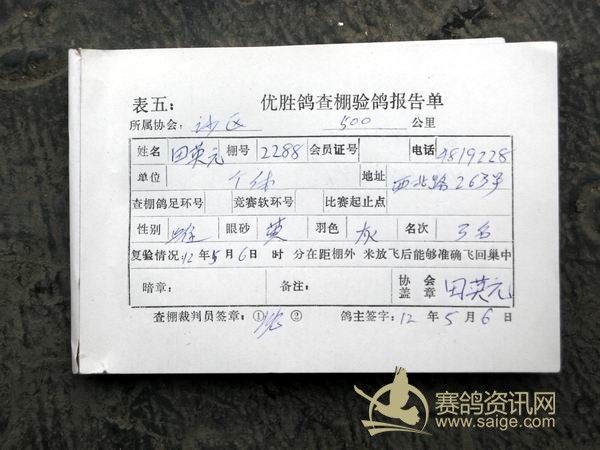 表五: 优胜鸽查棚验鸽报告单
所属协会: 沙区 500 公里
姓名 田英元 棚号 2288 会员证号 电话 4819228
单位 个体 地址 西北路263号
查棚鸽足环号 竞赛软环号 比赛起止点
性别 雌 眼砂 黄 羽色 灰 名次 3名
复验情况 12年5月6日 时 分在距棚外 米放飞后能够准确飞回巢中
暗章: 备注: 协会盖章 田英元
查棚裁判员签章: ① ② 鸽主签字: 12年5月6日
赛鸽资讯网
www.saige.com